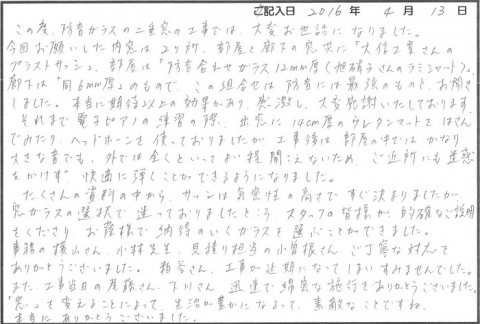 ご記入日 2016 年 4 月 13 日
この度、防音ガラスの二重窓の工事では、大変お世話になりました。
今回お願いした内窓は2ヶ所、部屋と廊下の窓に「大信工業さんの
プラストサッシ」、部屋は「防音合わせガラス12mm厚(旭硝子さんのラミシャット)」、
廊下は「同6mm厚」のもので、この組合せは防音には最強のものと、お聞き
しました。本当に期待以上の効果があり、感激し、大変感謝いたしております。
それまで電子ピアノの練習の際、出窓に14cm厚のウレタンマットをはさん
でみたり、ヘッドホーンを使っておりましたが、工事後は部屋の中では かなり
大きな音でも、外では全くといってよい程聞こえないため、ご近所にも迷惑
をかけず、快適に弾くことができるようになりました。
たくさんの資料の中から、サッシは気密性の高さで すぐ決まりましたが
窓ガラスの選択で迷っておりましたところ、スタッフの皆様が、的確なご説明
をくださり、お蔭様で納得のいくガラスを選ぶことができました。
事務の横山さん、小林先生、見積り担当の小曽根さん、ご丁寧な対応を
ありがとうございました。 工事が延期になってしまいすみませんでした。
また、工事当日の 下川さん、迅速で綿密な施行をありがとうございました。
「窓」を変えることによって、生活が豊かになるって、素敵なことですね。
本当に ありがとうございました。